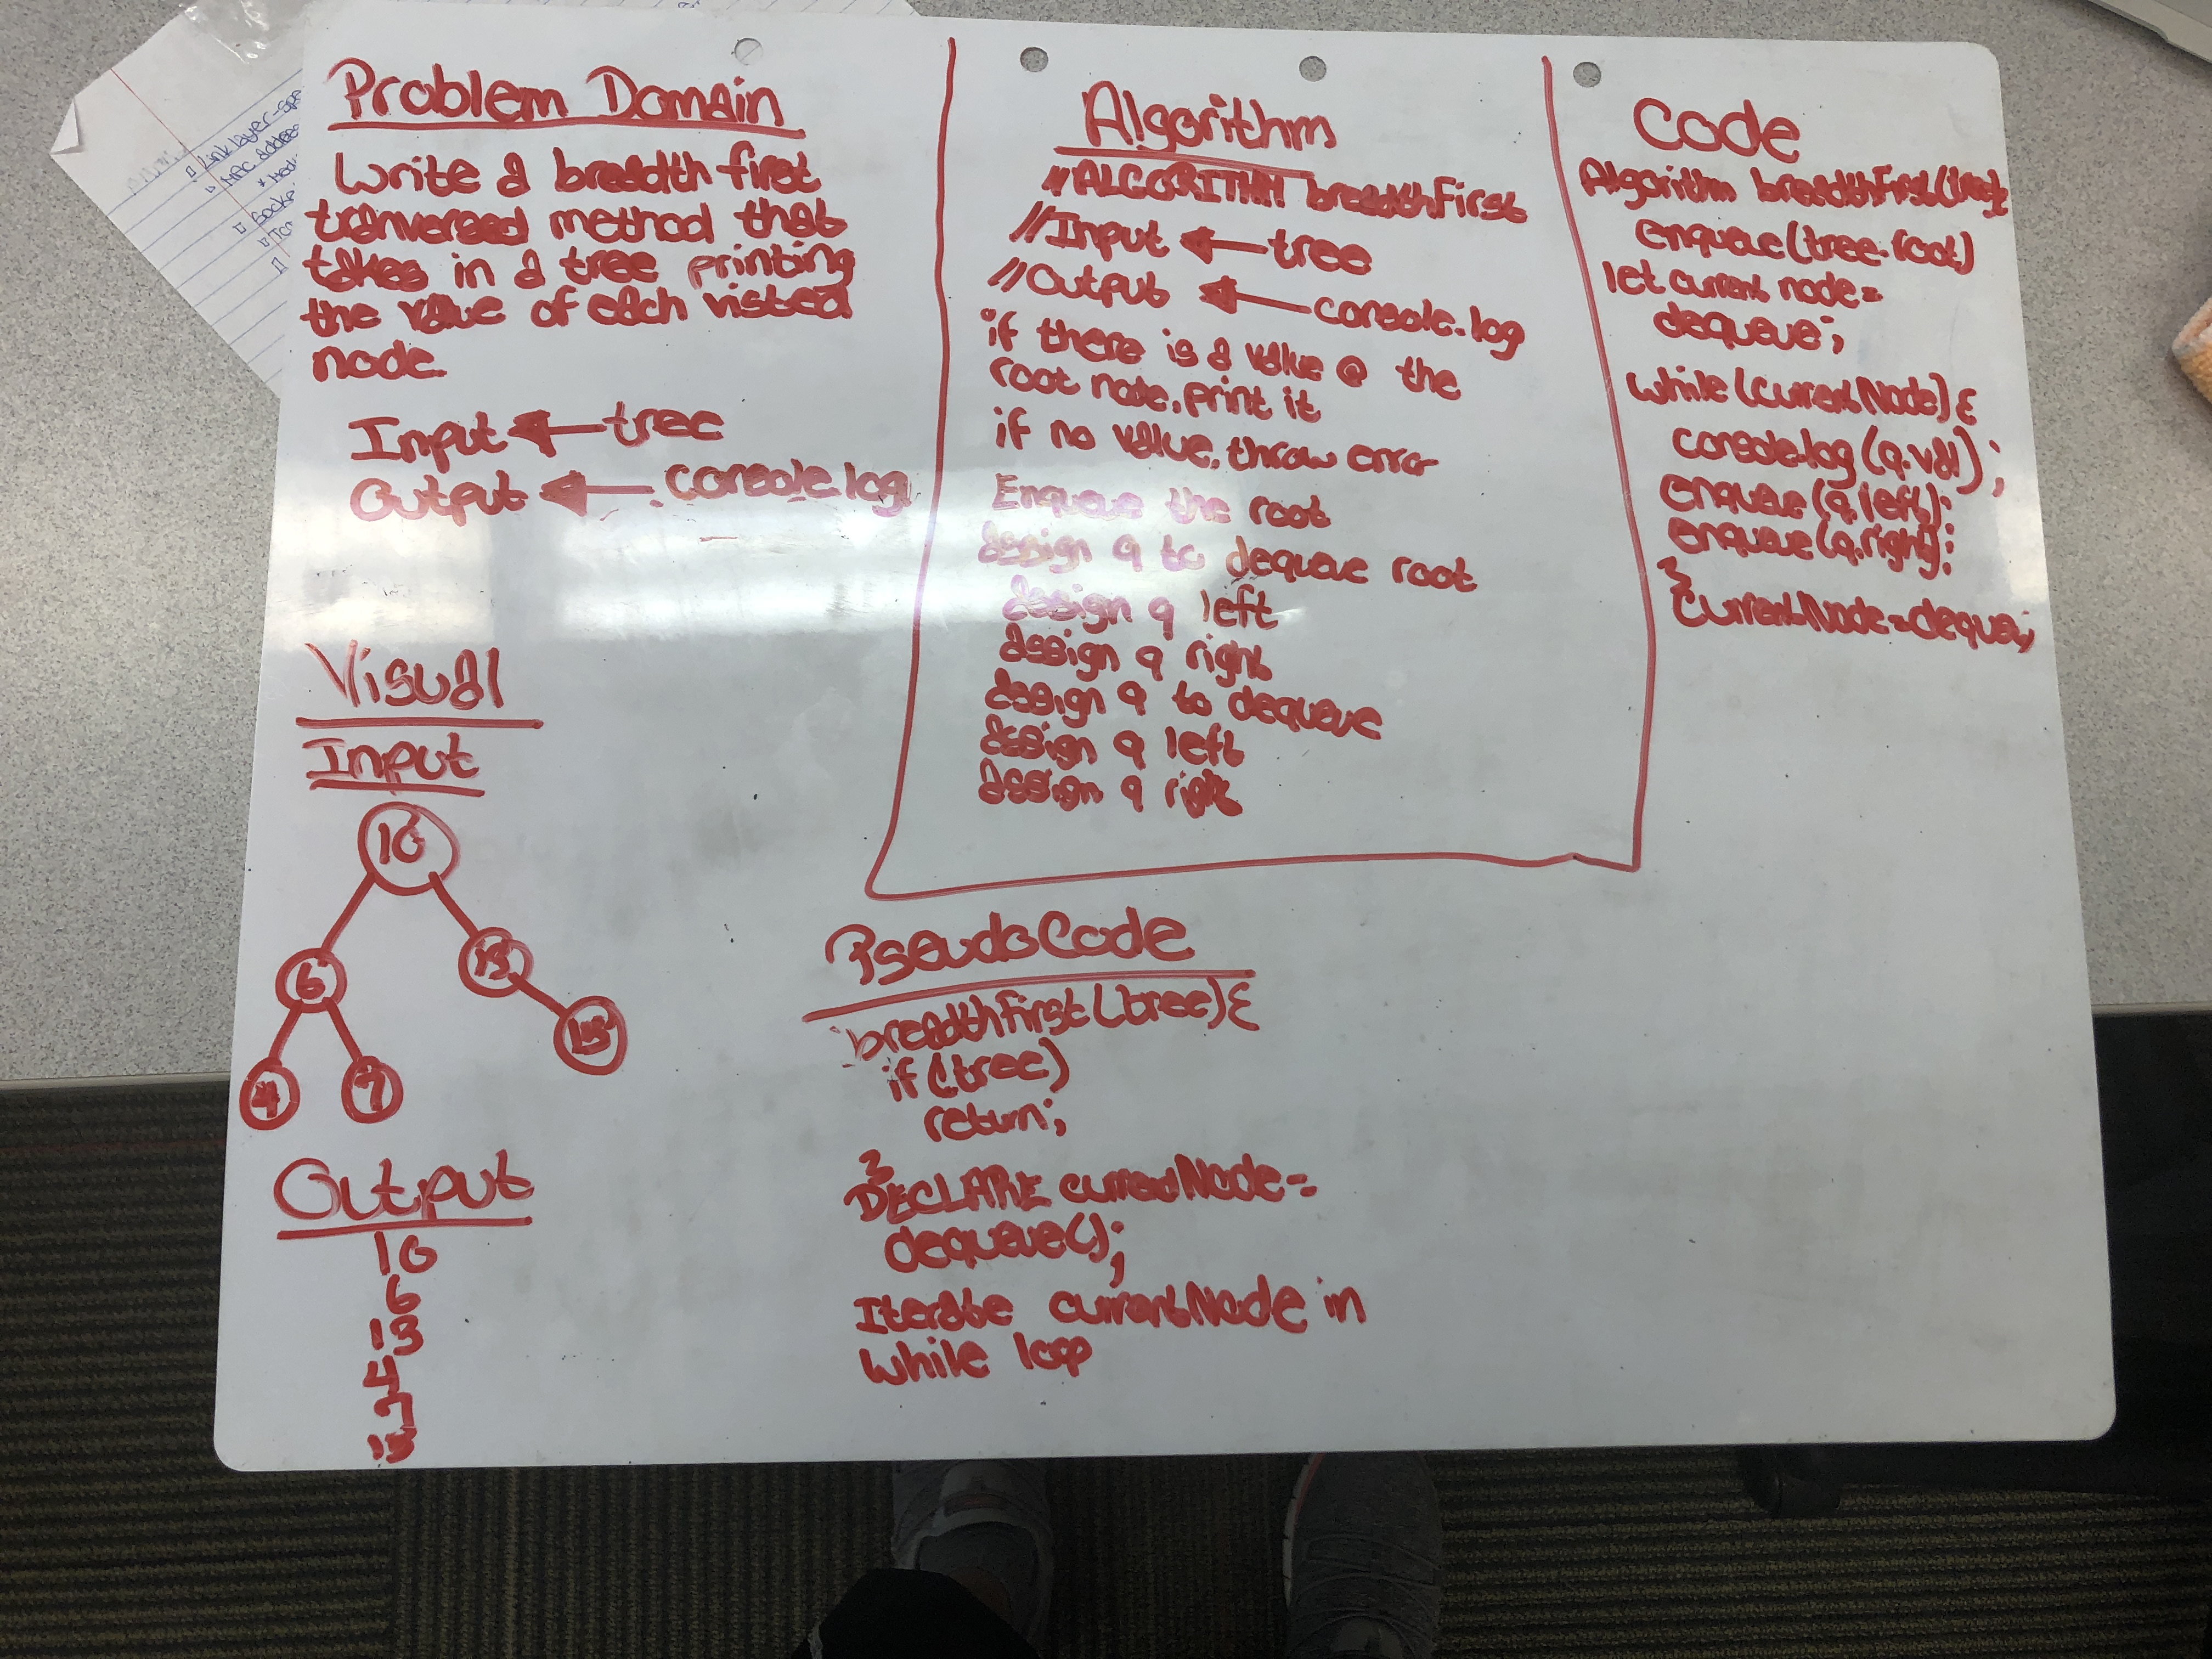 Problem Domain
Write a breadth first
traversal method that
takes in a tree printing
the value of each visited
node.
Input ← tree
Output ← console.log
Visual
Input
10
6
13
4
7
15
Output
10
6
13
4
7
15
Algorithm
"ALGORITHM breadthFirst
//Input ← tree
//Output ← console.log
if there is a value @ the
root node, print it
if no value, throw error
Enqueue the root
assign q to dequeue root
assign q left
assign q right
assign q to dequeue
assign q left
assign q right
PseudoCode
breadthFirst(tree){
if(tree)
return;
}
DECLARE currentNode =
dequeue();
Iterate currentNode in
while loop
Code
Algorithm breadthFirst(tree)
enqueue(tree.root)
let current node =
dequeue;
while(currentNode){
console.log(q.val);
enqueue(q.left);
enqueue(q.right);
}
currentNode = dequeue;
Link layer -
MAC address